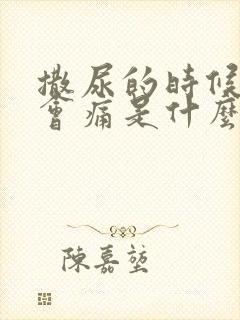 撒尿的時候
會痛是什麼
陳嘉堃